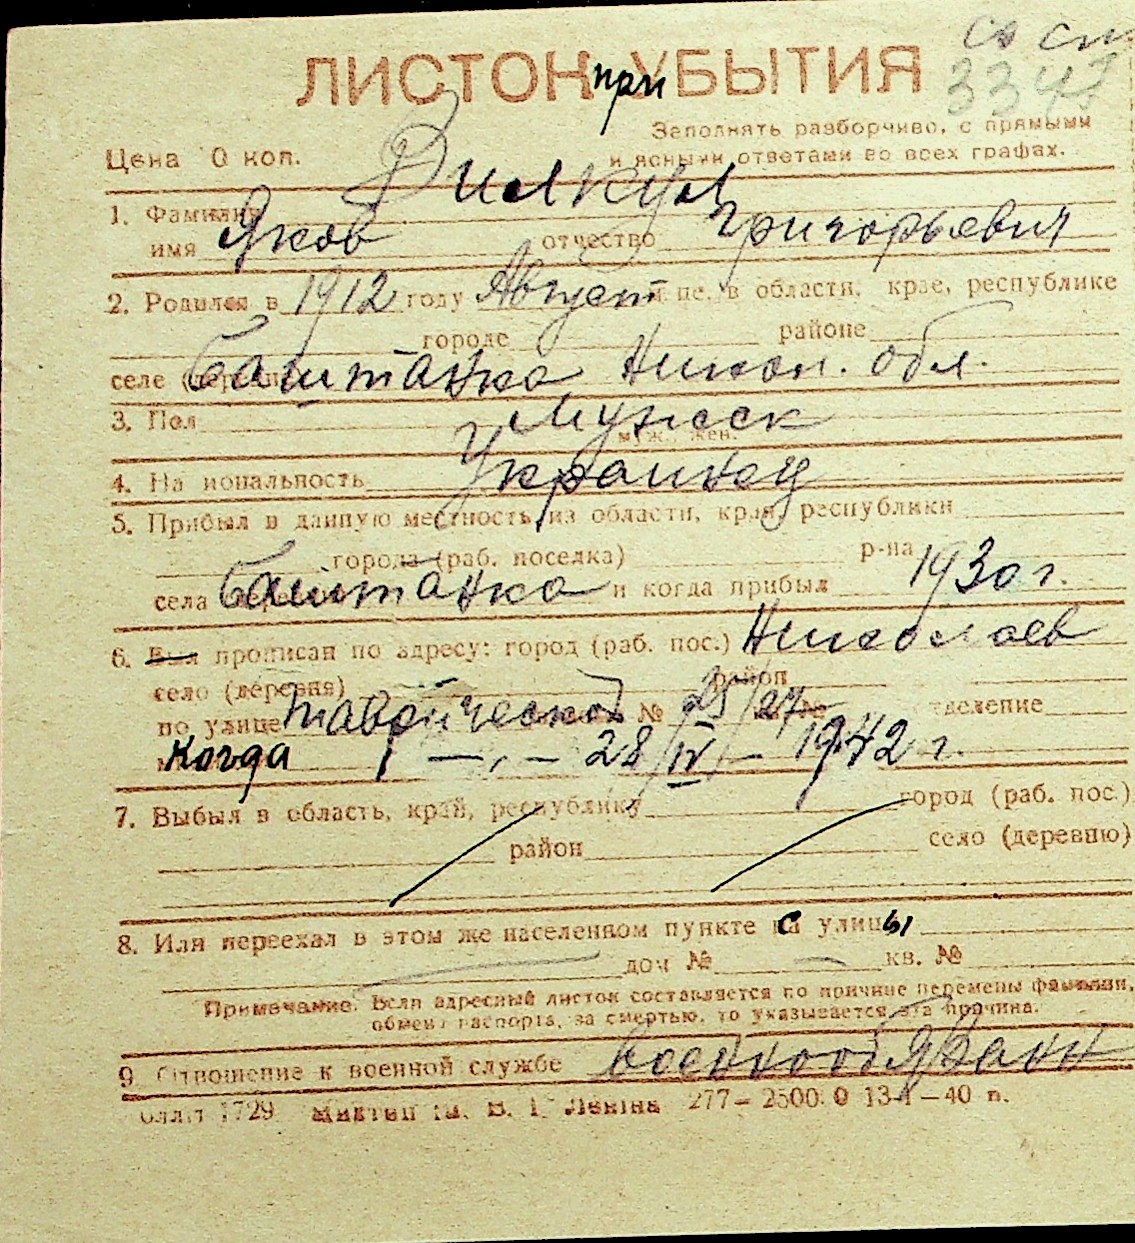 со сп
3347
ЛИСТОК при УБЫТИЯ
Заполнять разборчиво, с прямыми
Цена 0 коп. и ясными ответами во всех графах.
1. Фамилия
имя Яков отчество Григорьевич
2. Родился в 1912 году Август м-це, в области, крае, республике
городе районе
селе Баштанка Никол. обл.
3. Пол Мужск
муж., жен.
4. Национальность Украинец
5. Прибыл в данную местность из области, края, республики
города (раб. поселка) р-на
села Баштанка и когда прибыл 1930 г.
6. Был прописан по адресу: город (раб. пос.) Николаев
село (деревня) район
по улице Таврической № 25/27 отделение
Когда 28/IV – 1942 г.
7. Выбыл в область, край, республику город (раб. пос.)
район село (деревню)
8. Или переехал в этом же населенном пункте с улицы
дом № кв. №
Примечание. Если адресный листок составляется по причине перемены фамилии,
обмена паспорта, за смертью, то указывается эта причина.
9. Отношение к военной службе военнообязанн
1729 им. В. І. Леніна 277–2500 0 13-I–40 п.